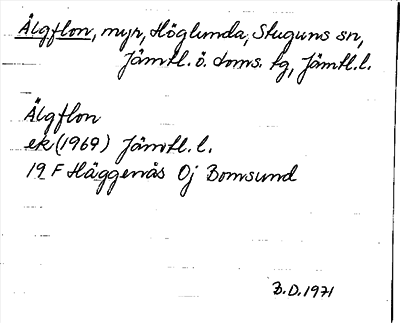 Älgflon, myr, Höglunda, Stuguns sn,
Jämtl. ö. doms. tg, Jämtl. l.
Älgflon
ek (1969) Jämtl. l.
19 F Häggenås Oj Bomsund
B.D. 1971